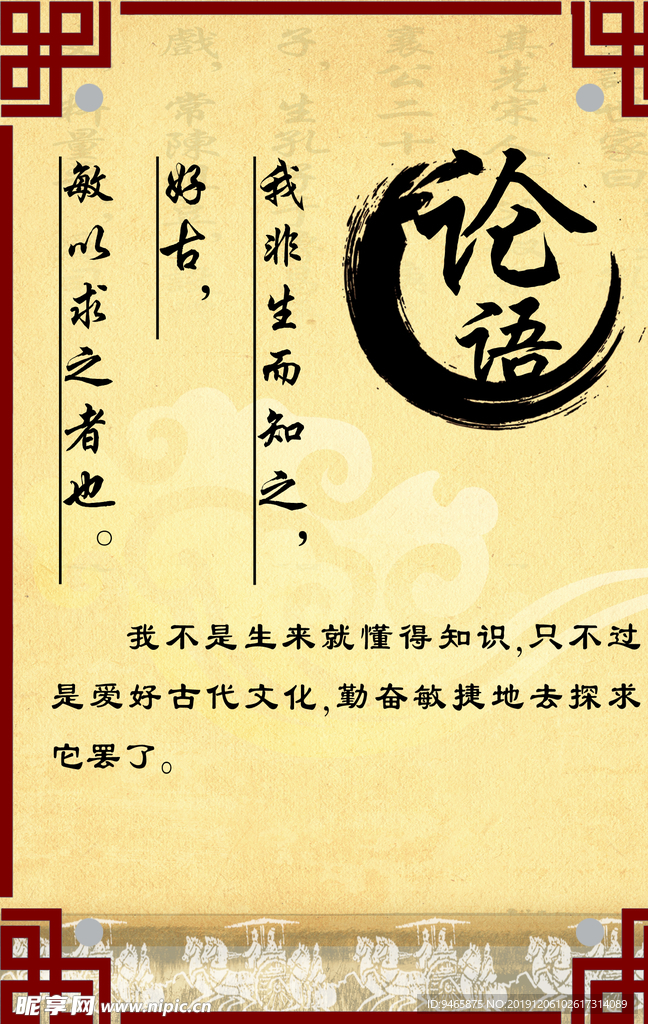 论语
我非生而知之，
好古，
敏以求之者也。
我不是生来就懂得知识，只不过
是爱好古代文化，勤奋敏捷地去探求
它罢了。
昵享网 www.nipic.cn
ID:9465875 NO:20191206102617314089